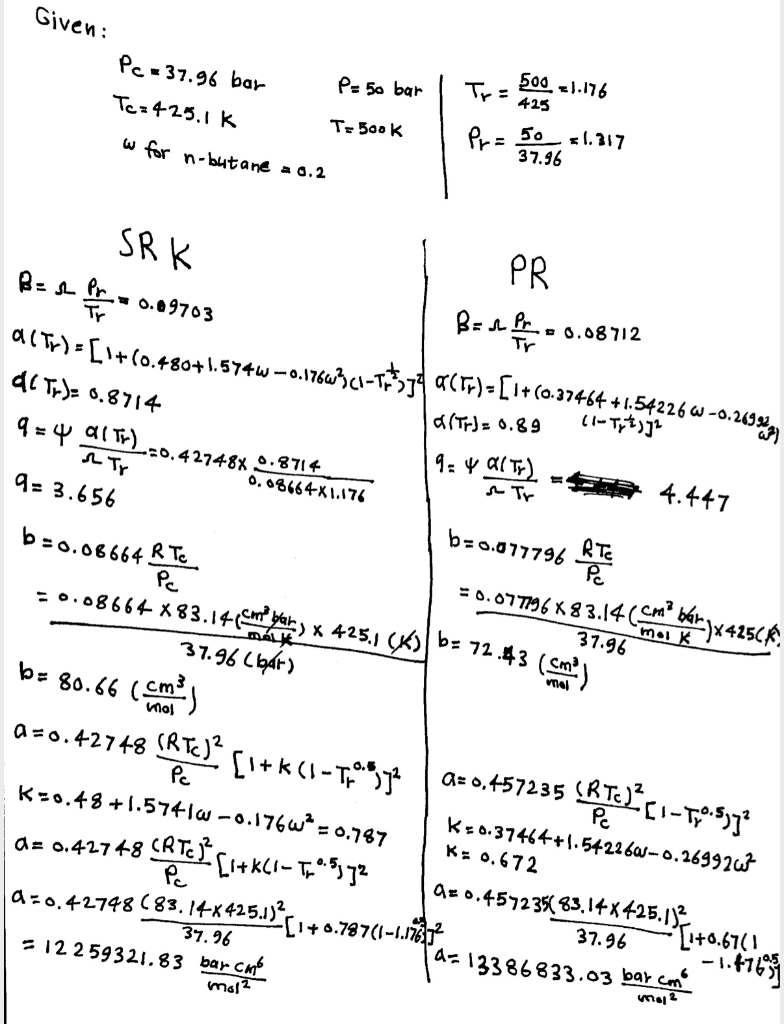 Given:
Pc = 37.96 bar
Tc = 425.1 K
ω for n-butane = 0.2
P = 50 bar
T = 500 K
Tr = 500/425 = 1.176
Pr = 50/37.96 = 1.317
SRK
B = Ω Pr/Tr = 0.09703
α(Tr) = [1+(0.480+1.574ω−0.176ω²)(1−Tr^½)]²
α(Tr) = 0.8714
q = Ψ α(Tr)/Ω Tr = 0.42748 × 0.8714/0.08664×1.176
q = 3.656
b = 0.08664 RTc/Pc
= 0.08664 × 83.14 (cm³ bar/mol K) × 425.1 (K)/37.96 (bar)
b = 80.66 (cm³/mol)
a = 0.42748 (RTc)²/Pc [1+K(1−Tr^0.5)]²
K = 0.48+1.5741ω−0.176ω² = 0.787
a = 0.42748 (RTc)²/Pc [1+K(1−Tr^0.5)]²
a = 0.42748 (83.14×425.1)²/37.96 [1+0.787(1−1.176^0.5)]²
= 12259321.83 bar cm⁶/mol²
PR
B = Ω Pr/Tr = 0.08712
α(Tr) = [1+(0.37464+1.54226ω−0.26992ω²)
(1−Tr^½)]²
α(Tr) = 0.89
q = Ψ α(Tr)/Ω Tr = 4.447
b = 0.077796 RTc/Pc
= 0.077796 × 83.14 (cm³ bar/mol K) × 425(K)/37.96
b = 72.43 (cm³/mol)
a = 0.457235 (RTc)²/Pc [1−Tr^0.5)]²
K = 0.37464+1.54226ω−0.26992ω²
K = 0.672
a = 0.457235(83.14×425.1)²/37.96 [1+0.67(1
−1.176^0.5)]
a = 13386833.03 bar cm⁶/mol²